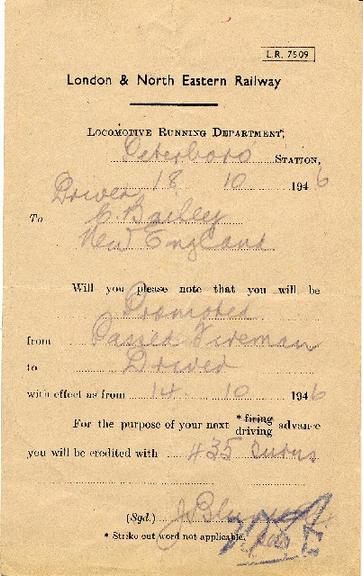 L.R. 7509
London & North Eastern Railway
LOCOMOTIVE RUNNING DEPARTMENT,
Peterboro STATION,
18 10 1946
Driver
To C. Bailey
New England
Will you please note that you will be
Promoted
from Passed Fireman
to Driver
with effect as from 14 10 1946
For the purpose of your next *firing advance
driving
you will be credited with 435 turns
(Sgd.)
* Strike out word not applicable.